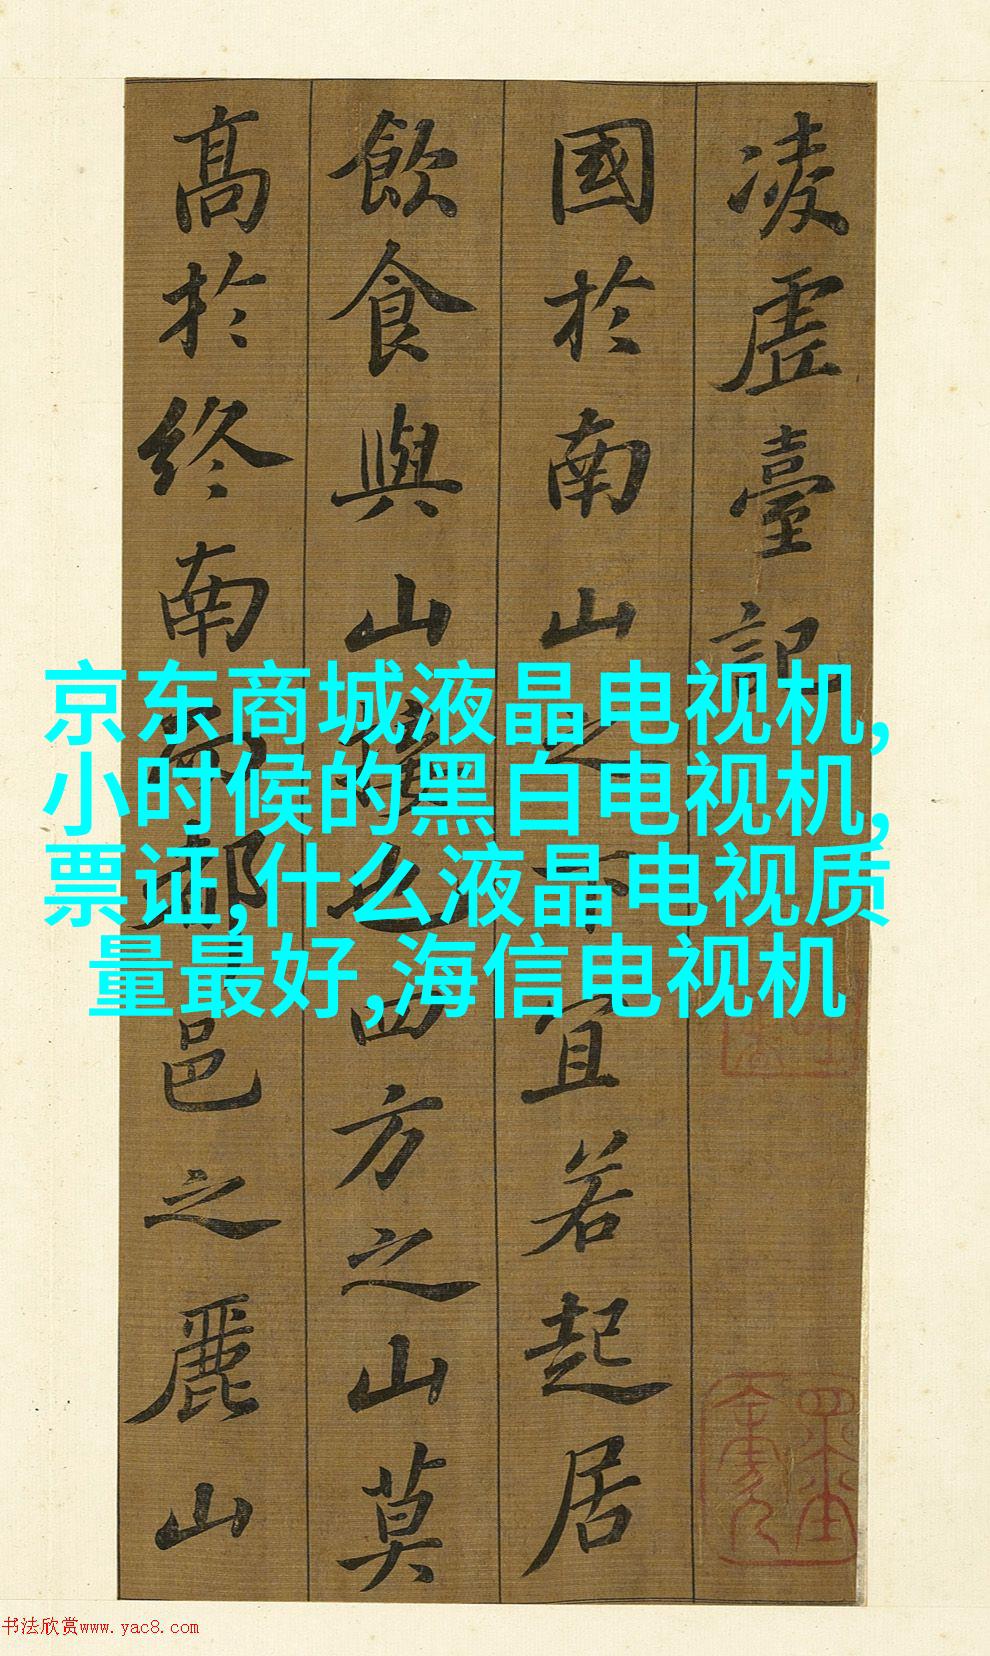 凌虛臺記
國於南山之下宜若起居
飲食與山接也四方之山莫
髙於終南而都邑之麗山
京东商城液晶电视机,
小时候的黑白电视机,
票证,什么液晶电视质
量最好,海信电视机
书法欣赏www.yac8.com